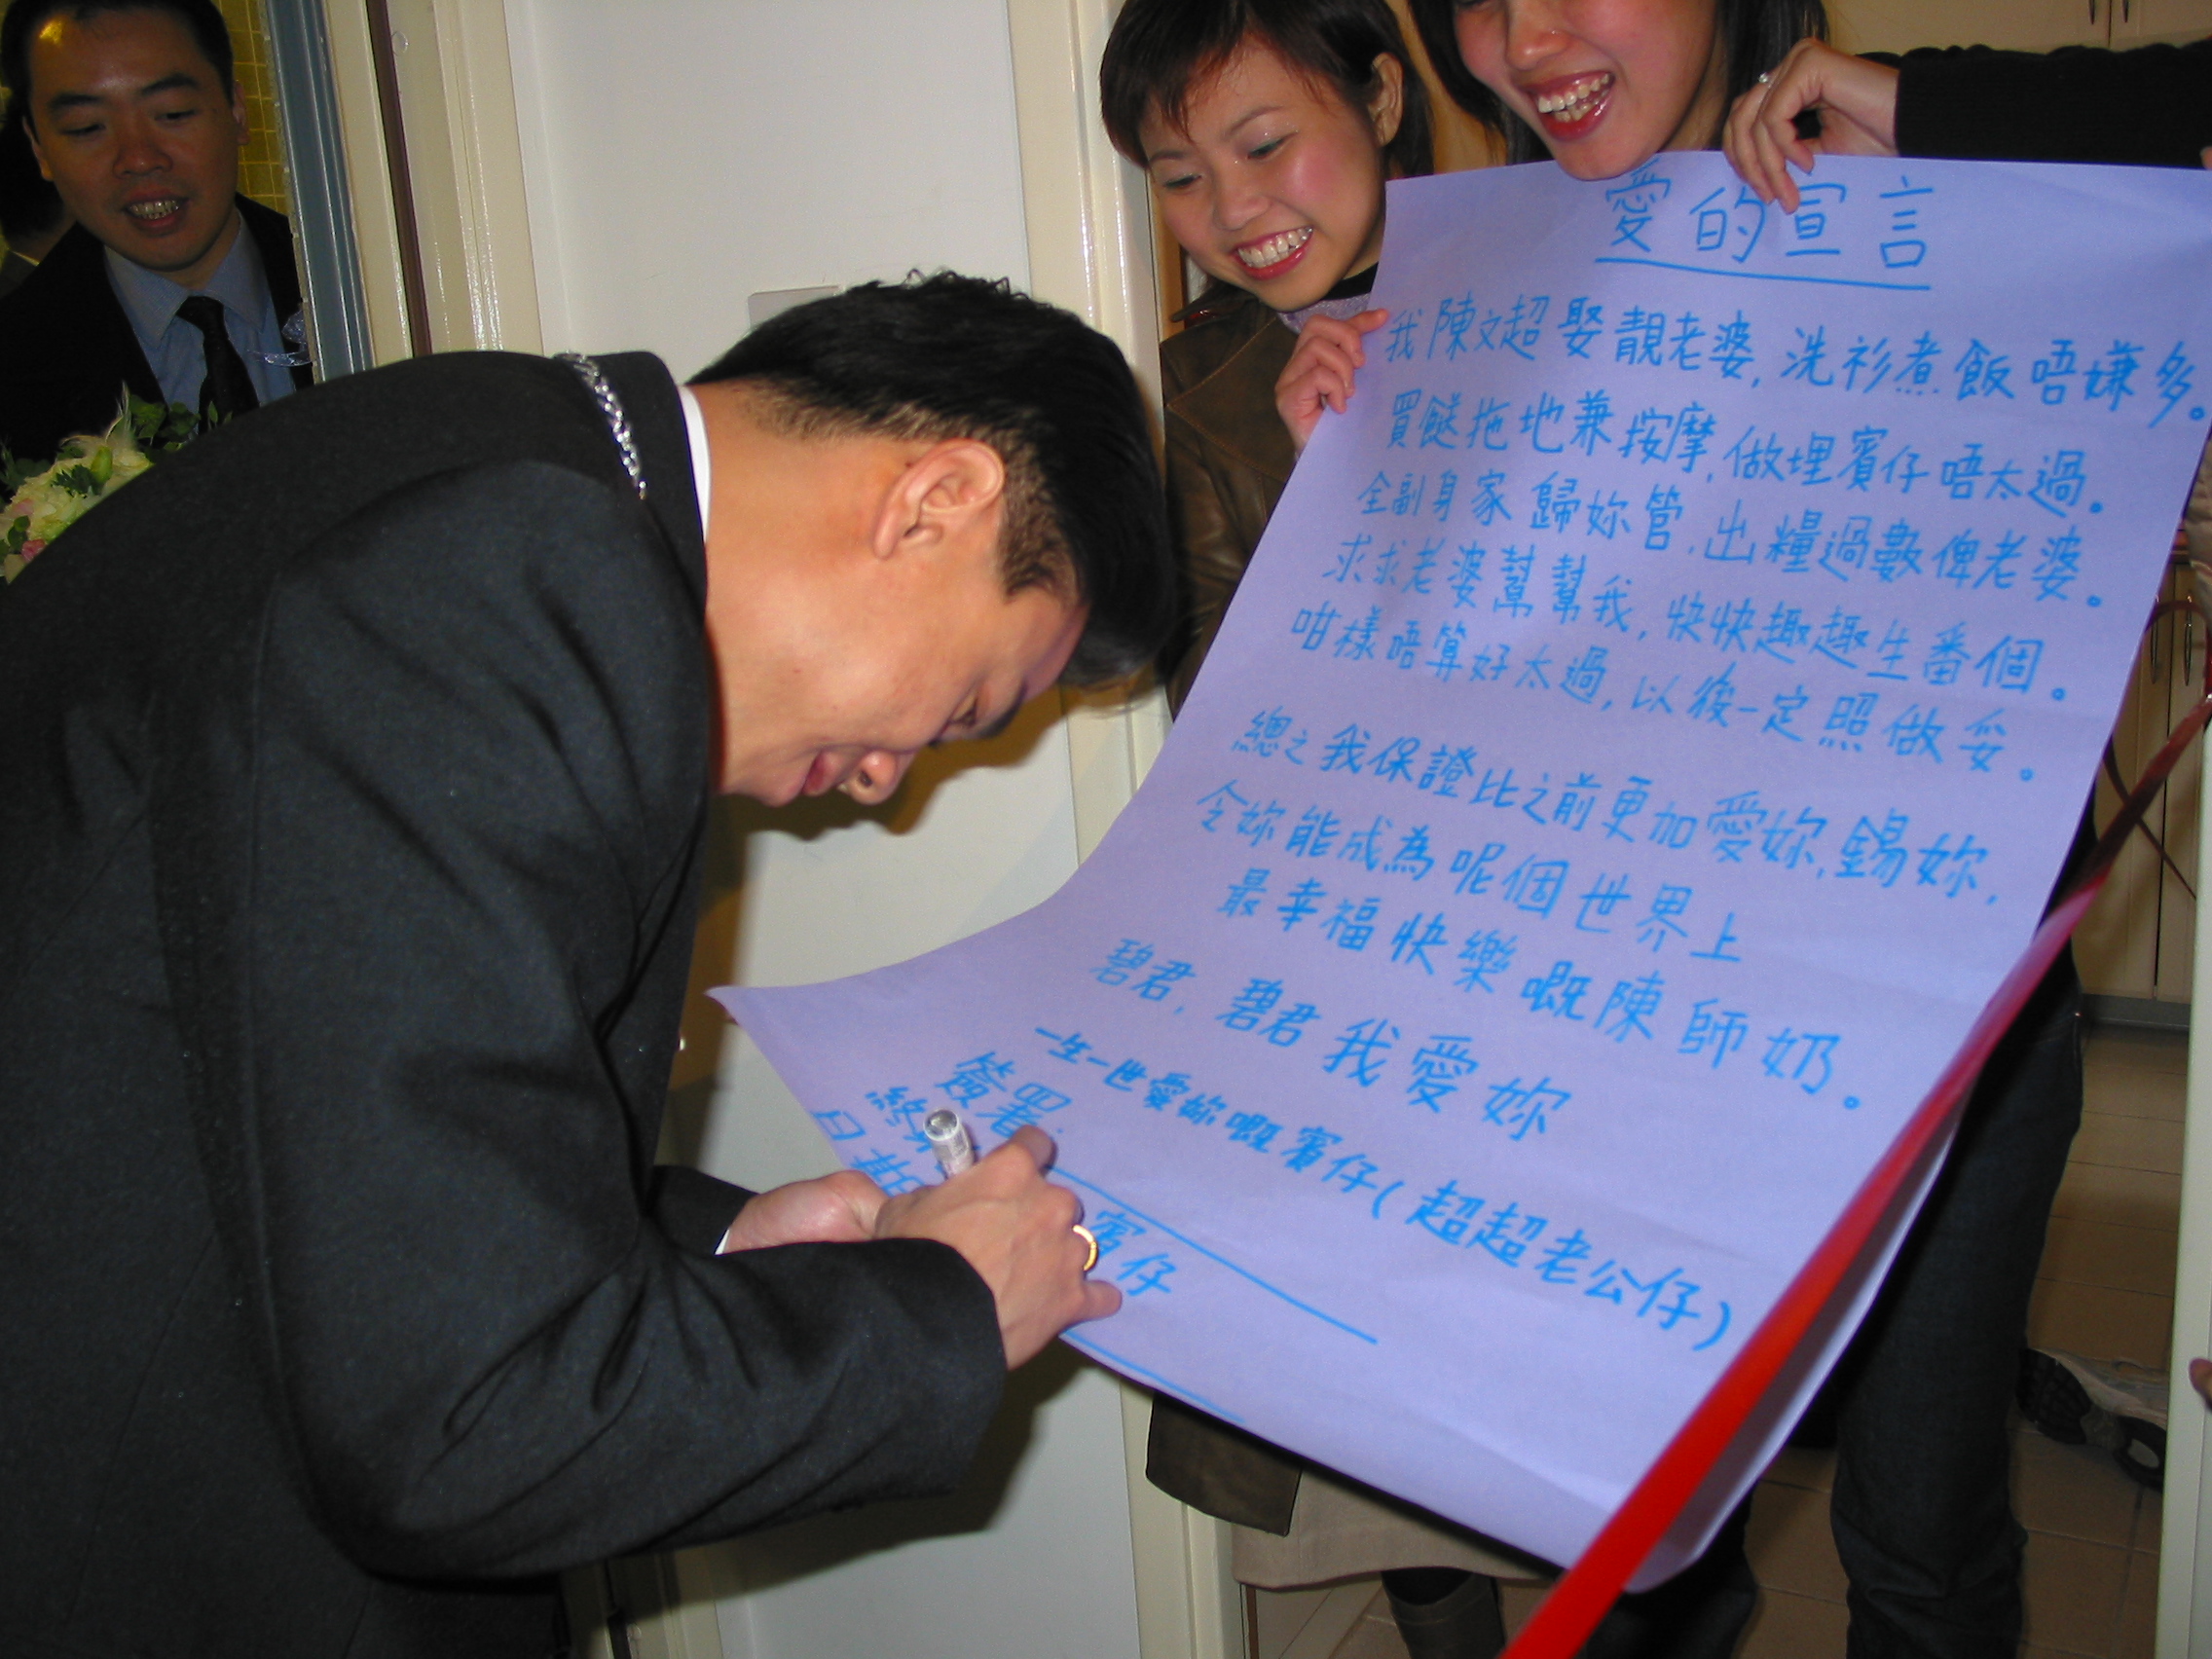 愛的宣言
我陳文超娶靚老婆,洗衫煮飯唔嫌多。
買餸拖地兼按摩,做埋賓仔唔太過。
全副身家歸妳管,出糧過數俾老婆。
求求老婆幫幫我,快快趣趣生番個。
咁樣唔算好太過,以後一定照做妥。
總之我保證比之前更加愛妳,錫妳,
令妳能成為呢個世界上
最幸福快樂嘅陳師奶。
碧君,碧君我愛妳
一生一世愛妳嘅賓仔(超超老公仔)
簽署:
賓仔
日期